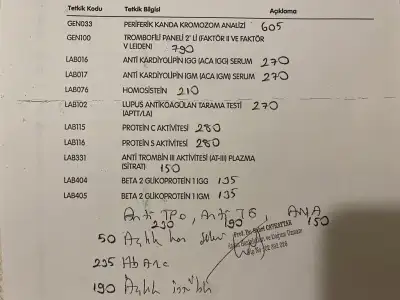 Tetkik Kodu Tetkik Bilgisi Açıklama
GEN033 PERİFERİK KANDA KROMOZOM ANALİZİ 605
GEN100 TROMBOFİLİ PANELİ 2' Lİ (FAKTÖR II VE FAKTÖR
V LEIDEN) 790
LAB016 ANTİ KARDİYOLİPİN IGG (ACA IGG) SERUM 270
LAB017 ANTİ KARDİYOLİPİN IGM (ACA IGM) SERUM 270
LAB076 HOMOSİSTEİN 210
LAB102 LUPUS ANTİKOAGÜLAN TARAMA TESTİ 270
(APTT/LA)
LAB115 PROTEİN C AKTİVİTESİ 280
LAB116 PROTEİN S AKTİVİTESİ 280
LAB331 ANTİ TROMBİN III AKTİVİTESİ (AT-III) PLAZMA
(SİTRAT) 150
LAB404 BETA 2 GLİKOPROTEIN 1 IGG 135
LAB405 BETA 2 GLİKOPROTEIN 1 IGM 135
Anti TPO, Anti TG, ANA
230 190 150
Prof. Dr.
50 Açlık kan şekeri
235 HbA1c
190 Açlık